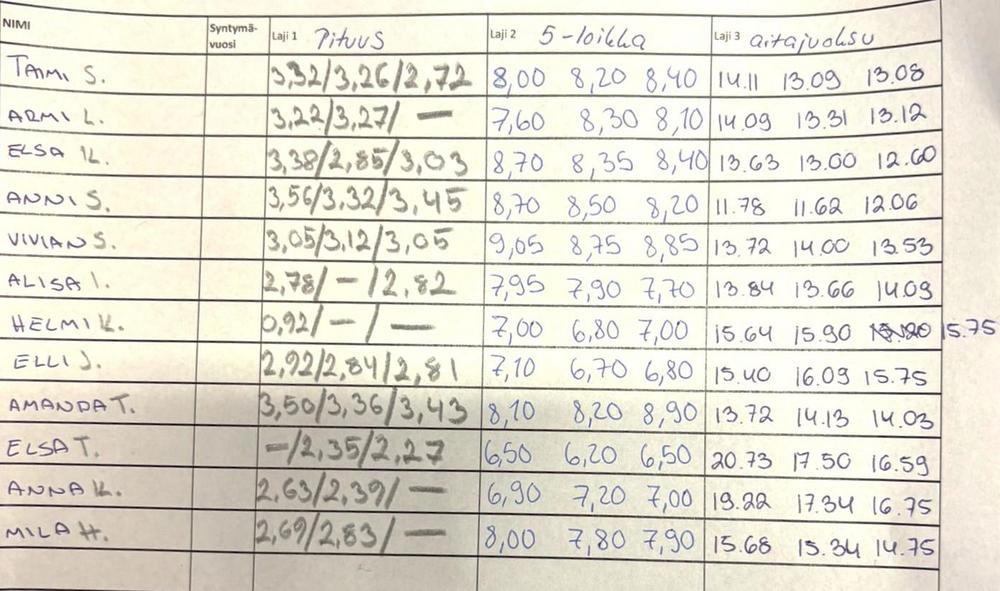 NIMI Syntymä- Laji 1 Pituus Laji 2 5-loikka Laji 3 aitajuoksu
vuosi
TAIMI S. 3,32/3,26/2,72 8,00 8,20 8,40 14.11 13.09 13.08
ARMI L. 3,22/3,27/ — 7,60 8,30 8,10 14.09 13.31 13.12
ELSA K. 3,38/2,85/3,03 8,70 8,35 8,40 13.63 13.00 12.60
ANNI S. 3,56/3,32/3,45 8,70 8,50 8,20 11.78 11.62 12.06
VIVIAN S. 3,05/3,12/3,05 9,05 8,75 8,85 13.72 14.00 13.53
ALISA I. 2,78/ — /2,82 7,95 7,90 7,70 13.84 13.66 14.09
HELMI K. 0,92/ — / — 7,00 6,80 7,00 15.64 15.90 15.75
ELLI J. 2,92/2,84/2,81 7,10 6,70 6,80 15.40 16.09 15.75
AMANDA T. 3,50/3,36/3,43 8,10 8,20 8,90 13.72 14.13 14.03
ELSA T. —/2,35/2,27 6,50 6,20 6,50 20.73 17.50 16.59
ANNA K. 2,63/2,39/ — 6,90 7,20 7,00 19.22 17.34 16.75
MILA H. 2,69/2,83/ — 8,00 7,80 7,90 15.68 15.34 14.75